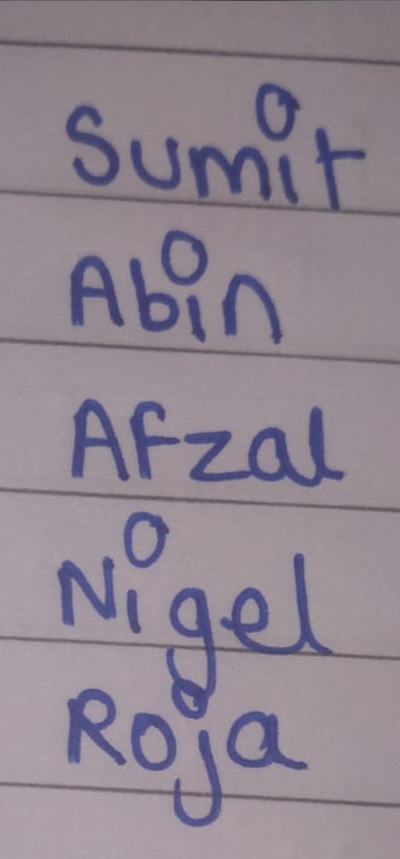 Sumit
Abin
Afzal
Nigel
Roja